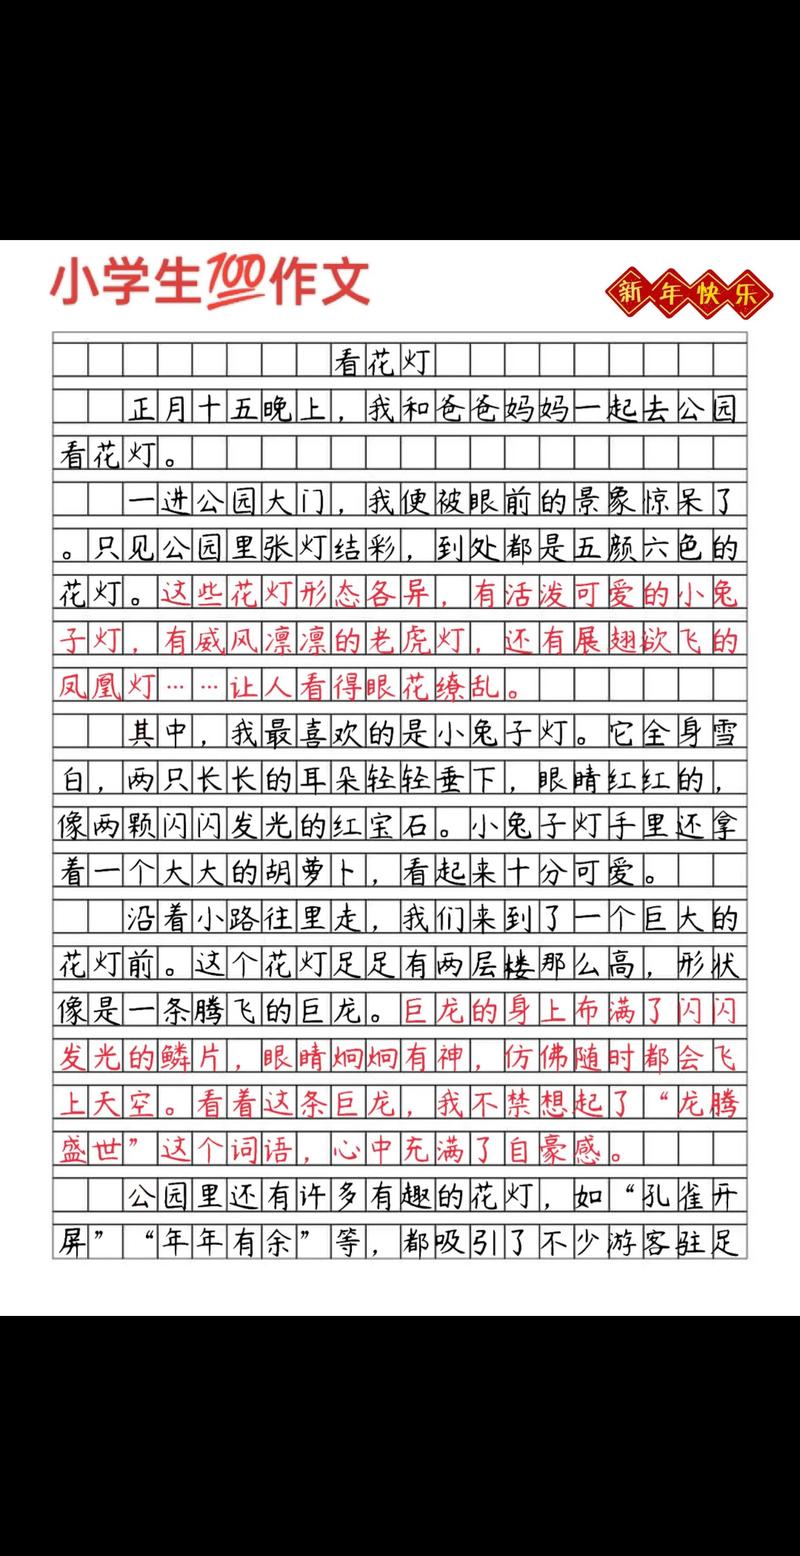 小学生100作文
新年快乐
看花灯
正月十五晚上，我和爸爸妈妈一起去公园
看花灯。
一进公园大门，我便被眼前的景象惊呆了
。只见公园里张灯结彩，到处都是五颜六色的
花灯。这些花灯形态各异，有活泼可爱的小兔
子灯，有威风凛凛的老虎灯，还有展翅欲飞的
凤凰灯……让人看得眼花缭乱。
其中，我最喜欢的是小兔子灯。它全身雪
白，两只长长的耳朵轻轻垂下，眼睛红红的，
像两颗闪闪发光的红宝石。小兔子灯手里还拿
着一个大大的胡萝卜，看起来十分可爱。
沿着小路往里走，我们来到了一个巨大的
花灯前。这个花灯足足有两层楼那么高，形状
像是一条腾飞的巨龙。巨龙的身上布满了闪闪
发光的鳞片，眼睛炯炯有神，仿佛随时都会飞
上天空。看着这条巨龙，我不禁想起了“龙腾
盛世”这个词语，心中充满了自豪感。
公园里还有许多有趣的花灯，如“孔雀开
屏”“年年有余”等，都吸引了不少游客驻足